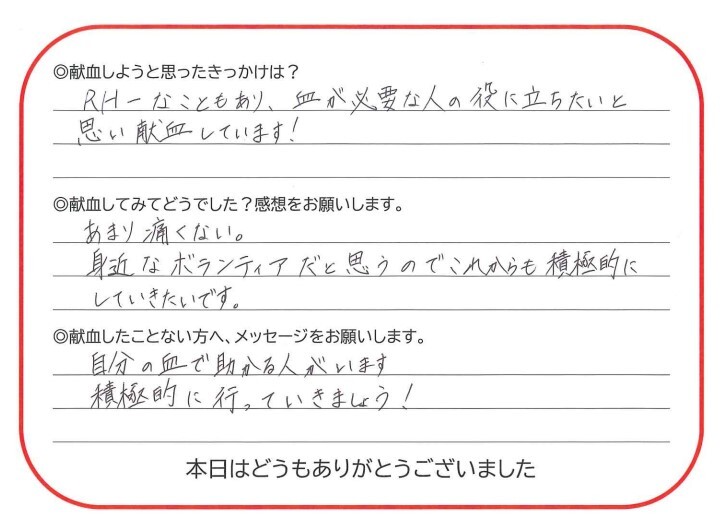 ◎献血しようと思ったきっかけは？
RH－なこともあり、血が必要な人の役に立ちたいと
思い献血しています！
◎献血してみてどうでした？感想をお願いします。
あまり痛くない。
身近なボランティアだと思うのでこれからも積極的に
していきたいです。
◎献血したことない方へ、メッセージをお願いします。
自分の血で助かる人がいます
積極的に行っていきましょう！
本日はどうもありがとうございました